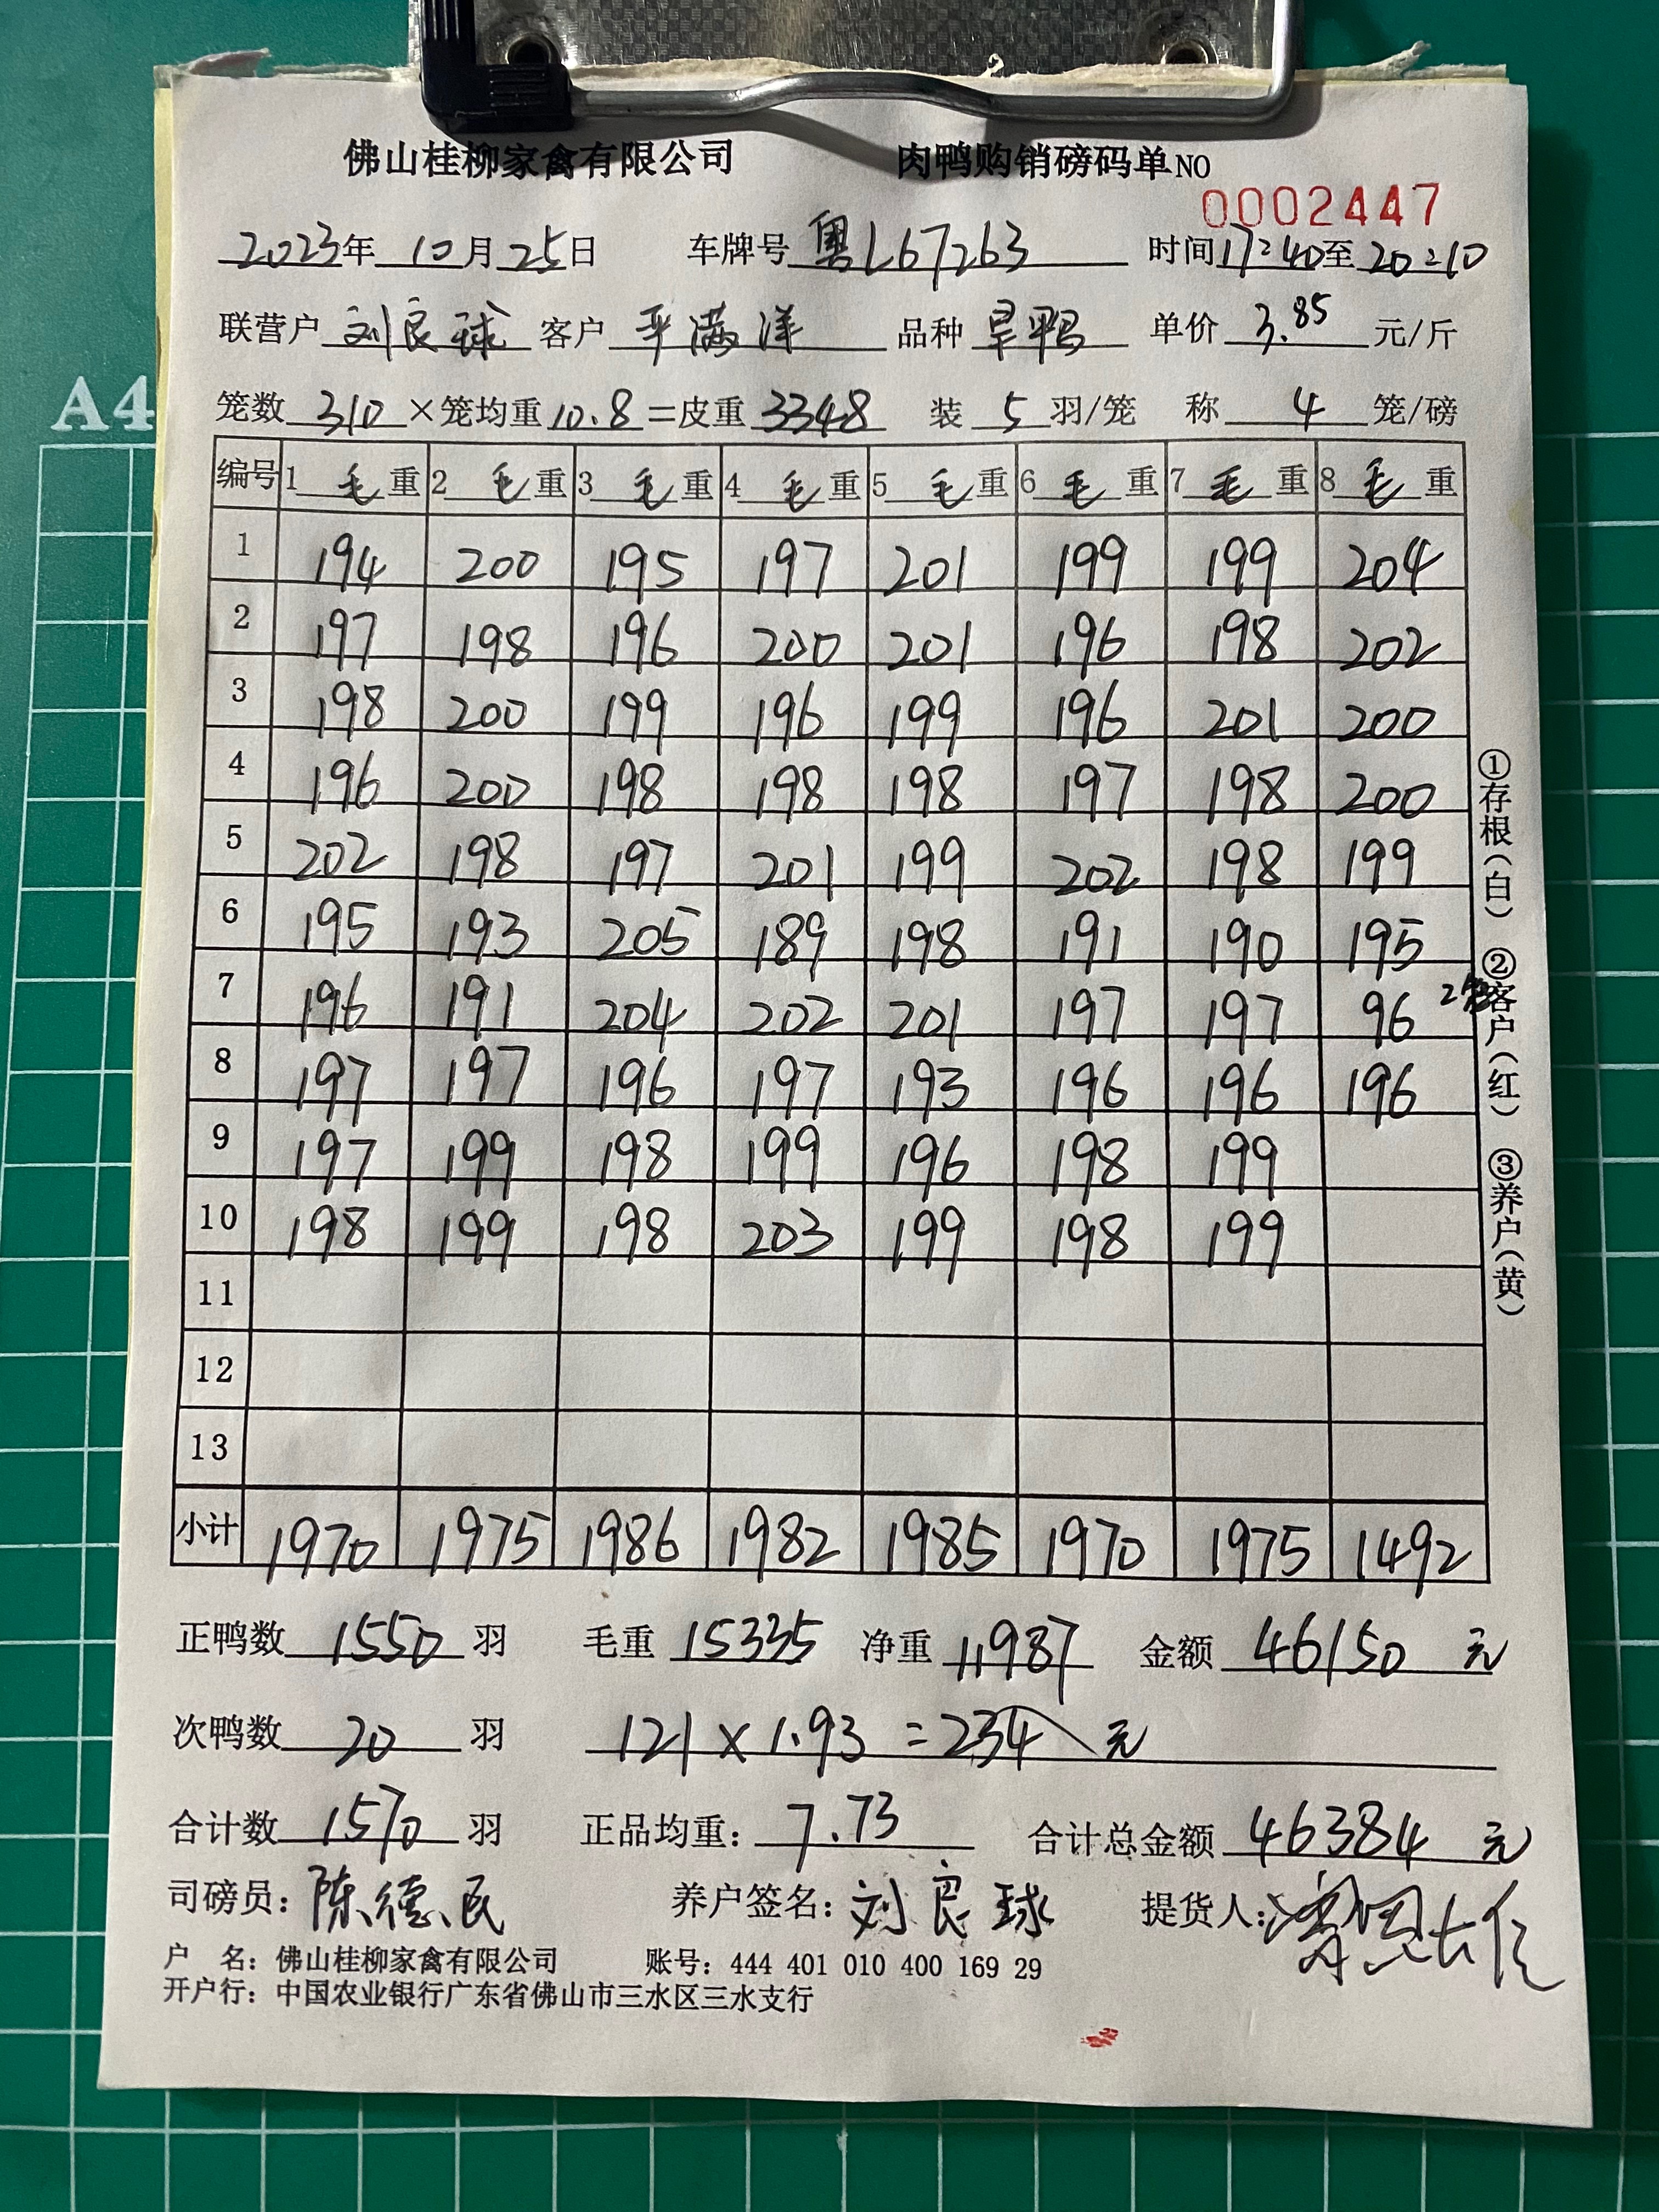 佛山桂柳家禽有限公司 肉鸭购销磅码单NO
0002447
2023年 10月25日 车牌号 粤L67263 时间17:40至20:10
联营户 刘良球 客户 平满洋 品种 旱鸭 单价 3.85 元/斤
笼数 310 ×笼均重 10.8 =皮重 3348 装 5 羽/笼 称 4 笼/磅
编号 1 毛重 2 毛重 3 毛重 4 毛重 5 毛重 6 毛重 7 毛重 8 毛重
1 194 200 195 197 201 199 199 204
2 197 198 196 200 201 196 198 202
3 198 200 199 196 199 196 201 200
4 196 200 198 198 198 197 198 200
5 202 198 197 201 199 202 198 199
6 195 193 205 189 198 191 190 195
7 196 191 204 202 201 197 197 96
8 197 197 196 197 193 196 196 196
9 197 199 198 199 196 198 199
10 198 199 198 203 199 198 199
11
12
13
小计 1970 1975 1986 1982 1985 1970 1975 1492
正鸭数 1550 羽 毛重 15335 净重 11987 金额 46150 元
次鸭数 20 羽 121 × 1.93 = 234 元
合计数 1570 羽 正品均重: 7.73 合计总金额 46384 元
司磅员: 陈德民 养户签名: 刘良球 提货人:
户 名: 佛山桂柳家禽有限公司 账号: 444 401 010 400 169 29
开户行: 中国农业银行广东省佛山市三水区三水支行
①存根(白) ②客户(红) ③养户(黄)
A4